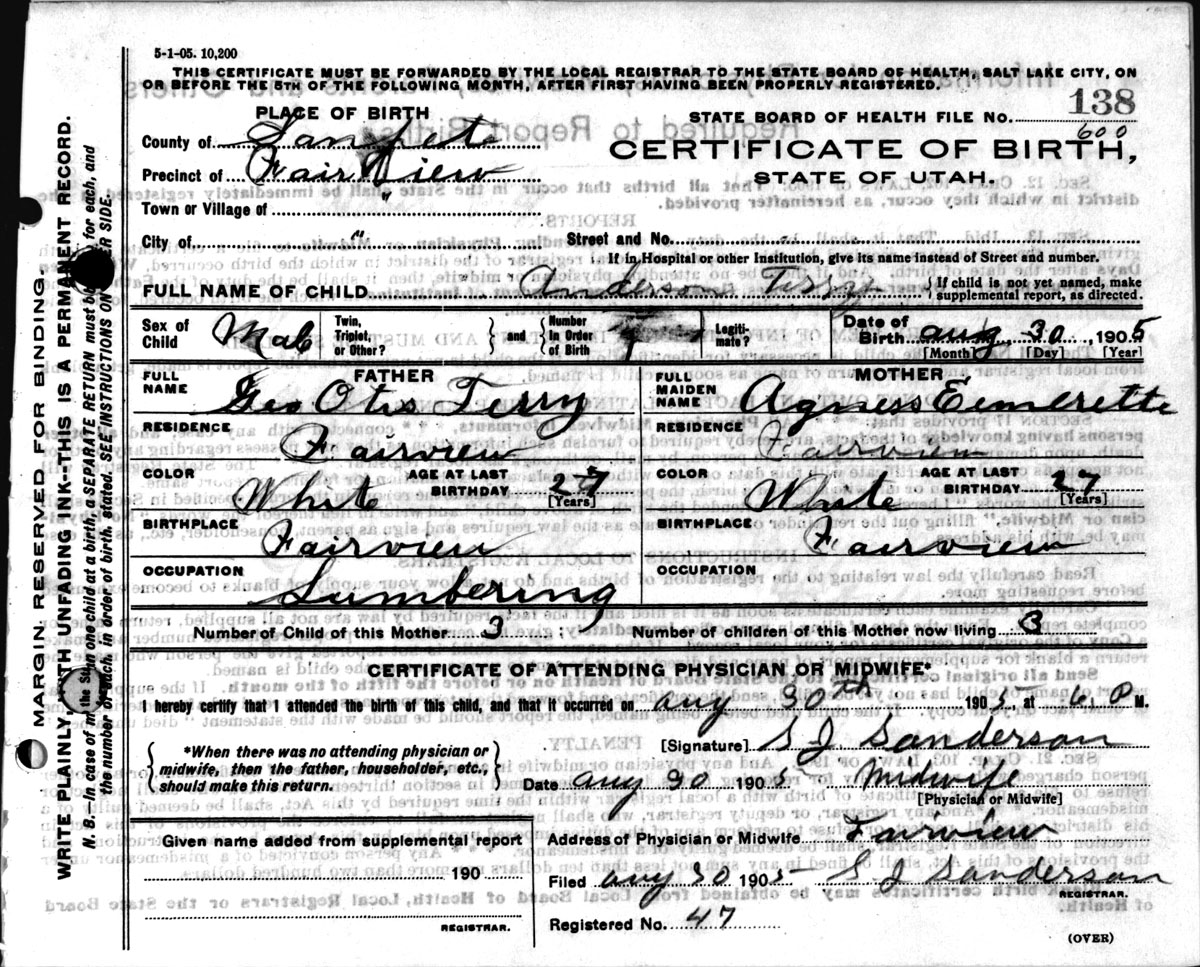 5-1-05. 10,200
THIS CERTIFICATE MUST BE FORWARDED BY THE LOCAL REGISTRAR TO THE STATE BOARD OF HEALTH, SALT LAKE CITY, ON
OR BEFORE THE 5TH OF THE FOLLOWING MONTH, AFTER FIRST HAVING BEEN PROPERLY REGISTERED.
PLACE OF BIRTH
STATE BOARD OF HEALTH FILE NO. 138
600
County of Sanpete
CERTIFICATE OF BIRTH,
Precinct of Fairview
STATE OF UTAH.
Town or Village of "
City of " Street and No.
If in Hospital or other Institution, give its name instead of Street and number.
FULL NAME OF CHILD Anderson Terry { If child is not yet named, make supplemental report, as directed.
Sex of Child Male Twin, Triplet, or Other? } and { Number in Order of Birth Legiti- mate? Date of Birth Aug 30 1905
[Month] [Day] [Year]
FATHER MOTHER
FULL NAME Geo Otis Terry FULL MAIDEN NAME Agness
RESIDENCE Fairview RESIDENCE Fairview
COLOR White AGE AT LAST BIRTHDAY [Years] COLOR White AGE AT LAST BIRTHDAY 27 [Years]
BIRTHPLACE Fairview BIRTHPLACE Fairview
OCCUPATION Lumbering OCCUPATION
Number of Child of this Mother 3 Number of children of this Mother now living 3
CERTIFICATE OF ATTENDING PHYSICIAN OR MIDWIFE*
I hereby certify that I attended the birth of this child, and that it occurred on Aug 30th 1905, at 6 P M.
{ *When there was no attending physician or midwife, then the father, householder, etc., should make this return. }
[Signature] S J Sanderson
Date Aug 30 1905 Midwife
[Physician or Midwife]
Given name added from supplemental report
190
REGISTRAR.
Address of Physician or Midwife Fairview
Filed Aug 30 1905 S J Sanderson
REGISTRAR.
Registered No. 47
(OVER)
MARGIN RESERVED FOR BINDING.
WRITE PLAINLY WITH UNFADING INK--THIS IS A PERMANENT RECORD.
N. B. In case of more than one child at a birth, a SEPARATE RETURN must be made for each, and
the number of each, in order of birth, stated. SEE INSTRUCTIONS ON OTHER SIDE.